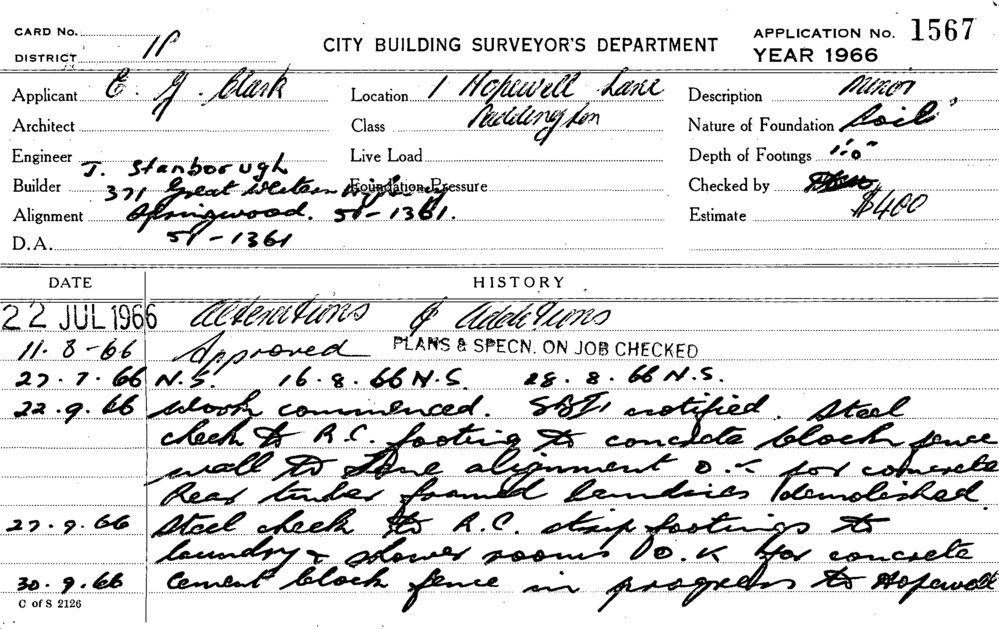 CARD No.
DISTRICT
CITY BUILDING SURVEYOR'S DEPARTMENT
APPLICATION No. 1567
YEAR 1966
Applicant E. J. Clark
Location 1 Hopewell Lane
Description Minor
Architect
Class Paddington
Nature of Foundation Soil
Engineer J. Stanborough
Live Load
Depth of Footings 1'.0"
Builder 371 Great Western Highway
Foundation Pressure
Checked by
Alignment Springwood. 51-1361.
Estimate $400
D.A. 51-1361
DATE HISTORY
22 JUL 1966 Alterations & Additions
11.8-66 Approved PLANS & SPECN. ON JOB CHECKED
27.7.66 N.S. 16.8.66 N.S. 28.8.66 N.S.
22.9.66 Work commenced. notified. Steel
check to R.C. footing to concrete block fence
wall to lane alignment O.K for concrete
Rear timber framed laundries demolished
27.9.66 Steel check to R.C. strip footings to
laundry & shower rooms O.K for concrete
30.9.66 Cement block fence in progress to Hopewell
C of S 2126